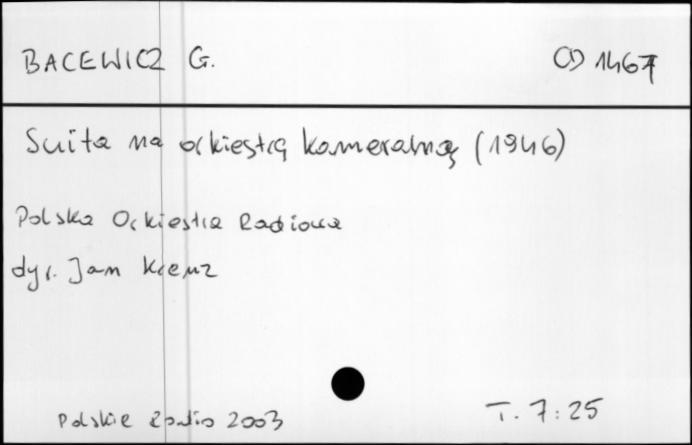 BACEWICZ G. CD 1467
Suita na orkiestrę kameralną (1946)
Polska Orkiestra Radiowa
dyr. Jan Krenz
Polskie Radio 2003 T. 7:25